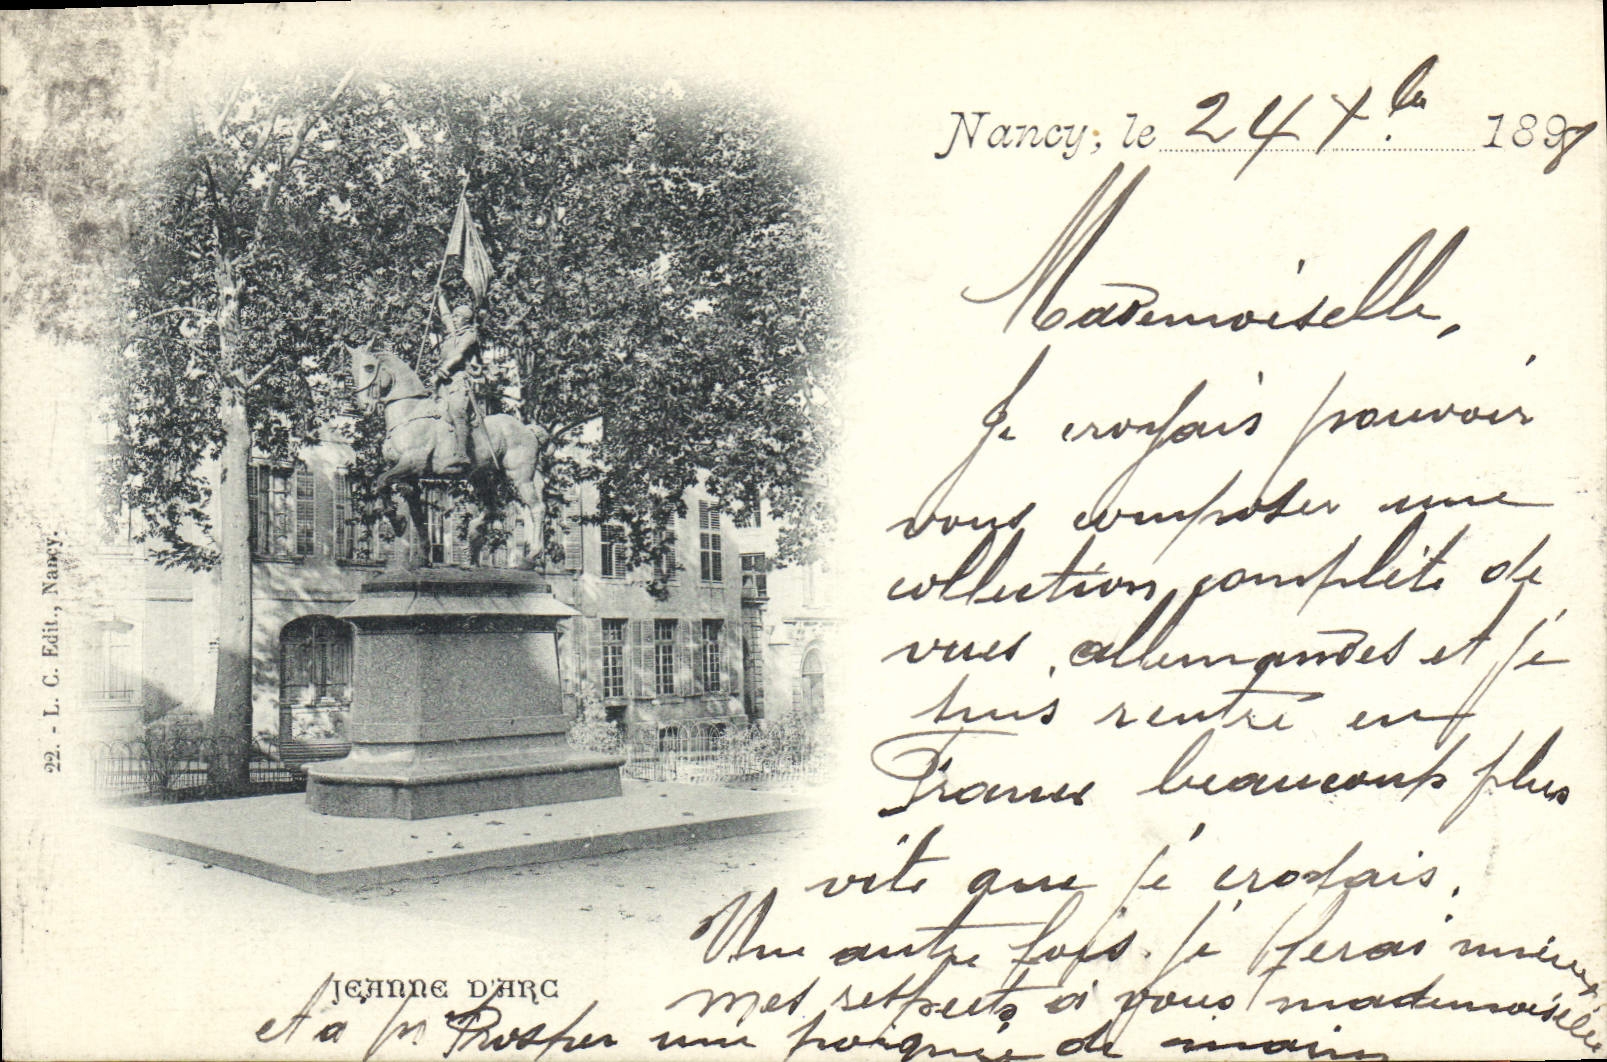 Nancy, le 24 Xbre 1898
Mademoiselle,
Je croyais pouvoir
vous composer une
collection complète de
vues allemandes et je
suis rentré en
France beaucoup plus
vite que je croyais.
Une autre fois je ferai mieux
mes respects à vous mademoiselle
et à Mr Prosper une poignée de main
JEANNE D'ARC
22. - L. C. Edit., Nancy.